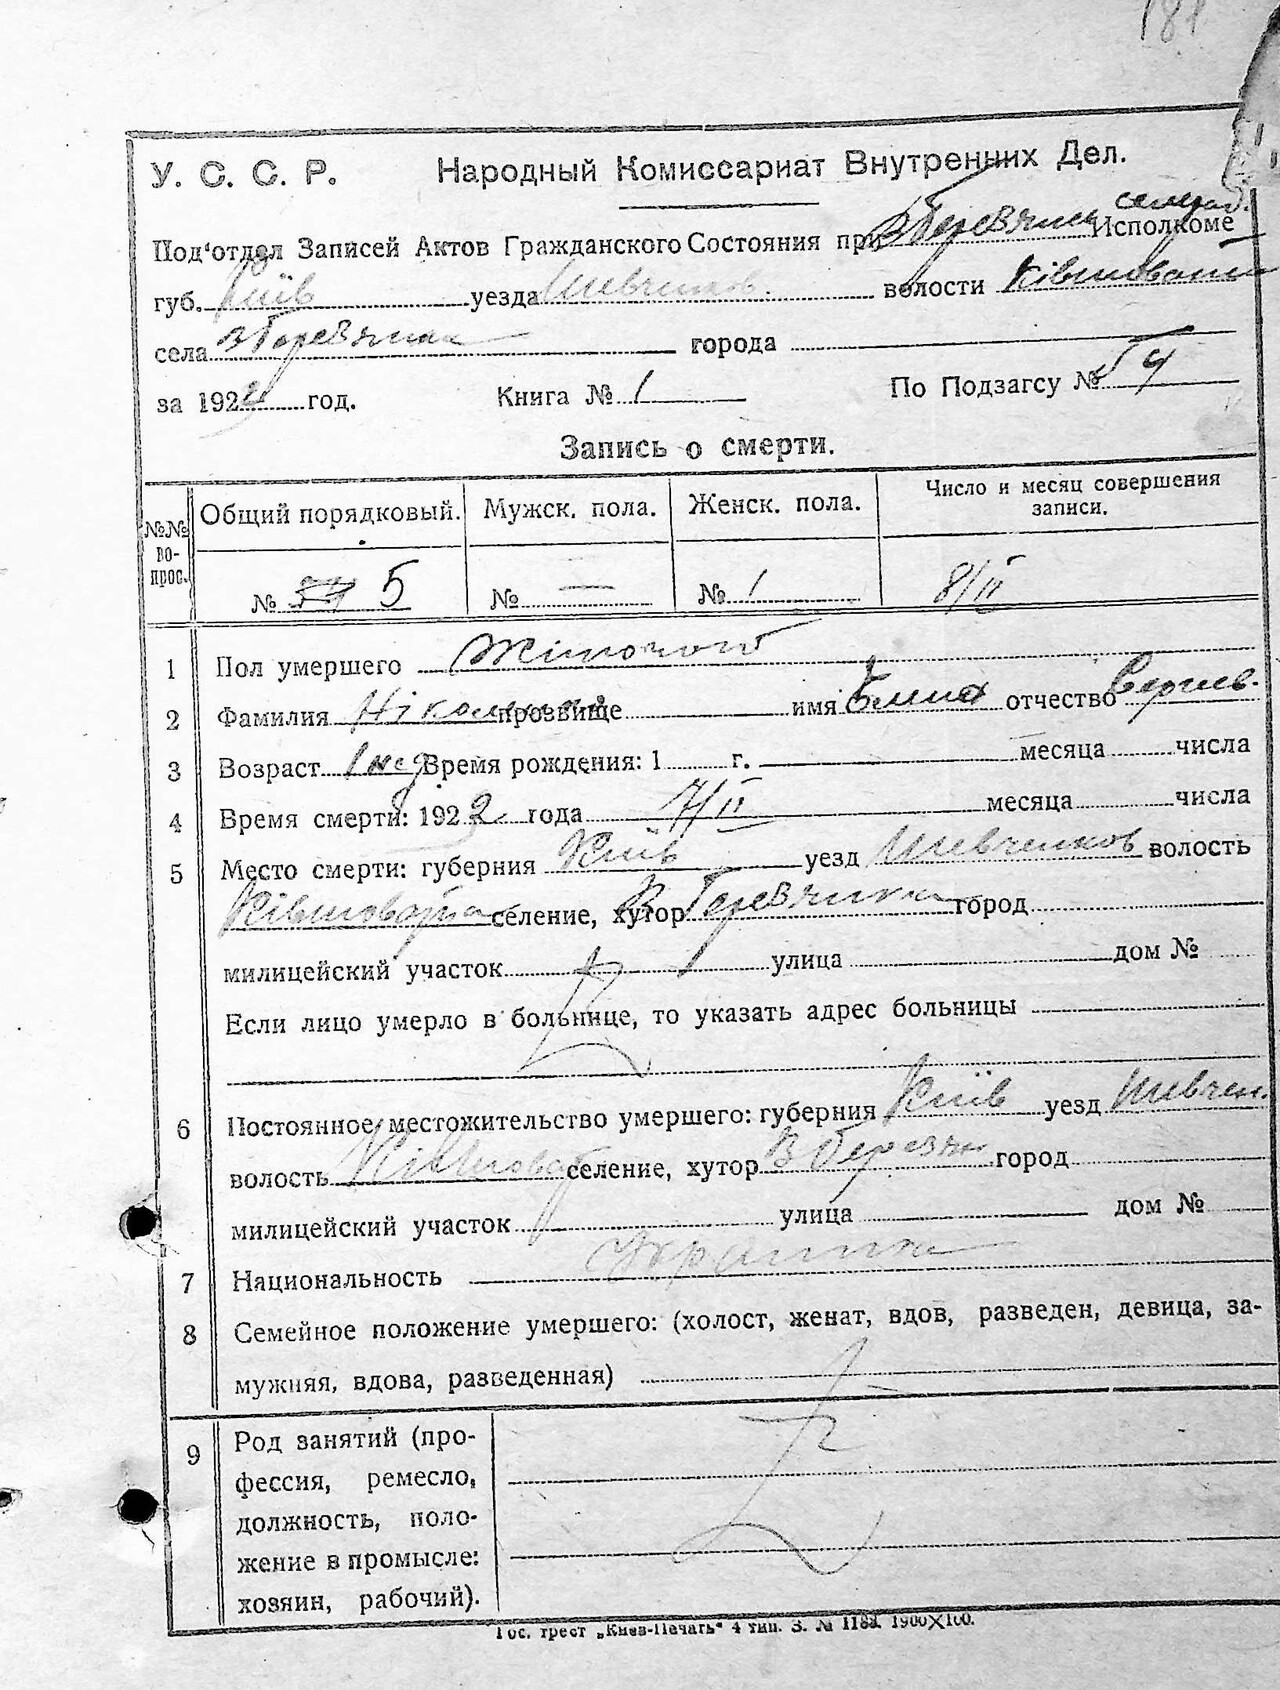 181
У. С. С. Р. Народный Комиссариат Внутренних Дел.
Под'отдел Записей Актов Гражданского Состояния при В Березянк. сельрад. Исполкоме
губ. Київ уезда Шевченков. волости Ківшовати
села В Березянка города
за 1922 год. Книга № 1 По Подзагсу № 54
Запись о смерти.
№№ вопрос. Общий порядковый. Мужск. пола. Женск. пола. Число и месяц совершения записи.
№ 5 № — № 1 8/II
1 Пол умершего Жіночої
2 Фамилия прозвище имя отчество Сергіев.
3 Возраст 1 нед Время рождения: 1 г. месяца числа
4 Время смерти: 1922 года 7/II месяца числа
5 Место смерти: губерния Київ уезд Шевченков волость
Ківшоватка селение, хутор В Березянка город
милицейский участок улица дом №
Если лицо умерло в больнице, то указать адрес больницы
6 Постоянное местожительство умершего: губерния Київ уезд Шевчен.
волость Ківшоват селение, хутор В Березян город
милицейский участок улица дом №
7 Национальность Українка
8 Семейное положение умершего: (холост, женат, вдов, разведен, девица, за-
мужняя, вдова, разведенная)
9 Род занятий (про-
фессия, ремесло,
должность, поло-
жение в промысле:
хозяин, рабочий).
Гос. трест „Киев-Печать“ 4 тип. З. № 1188. 1900×100.